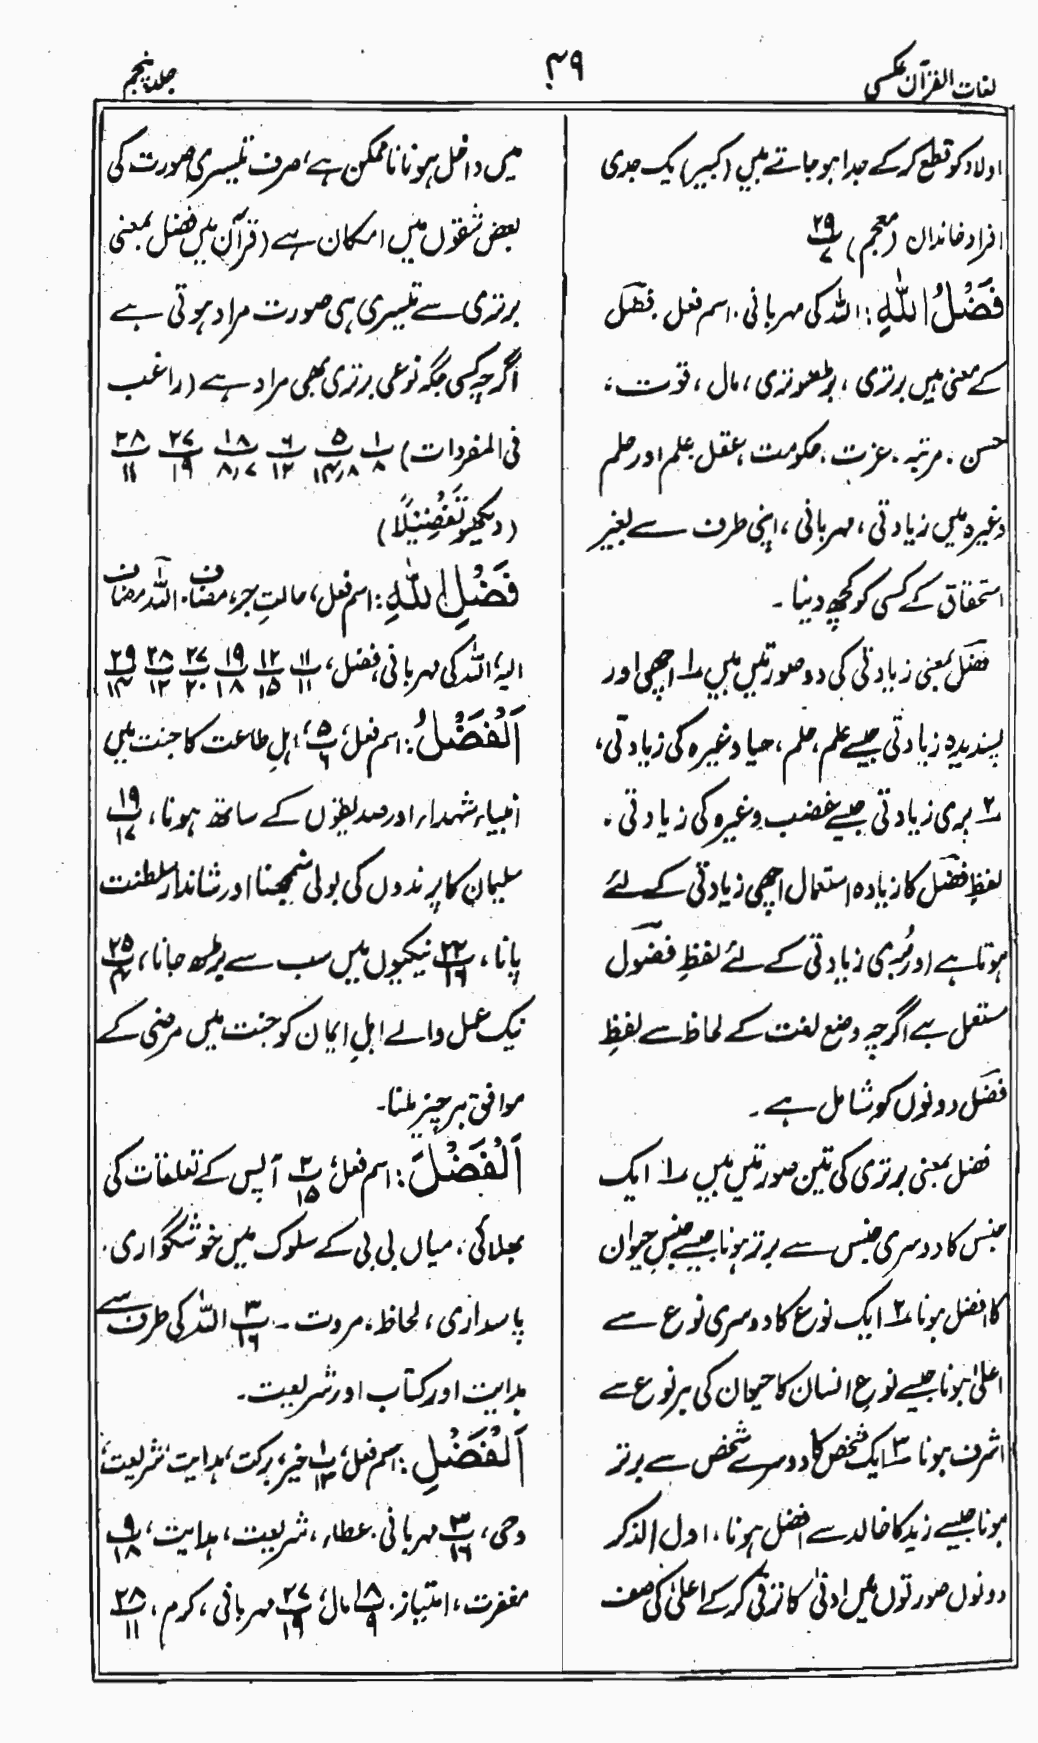 لغات القرآن عکسی
۴۹
جلد پنجم
اولاد کو قطع کر کے جدا ہو جاتے ہیں (کبیر) یک جدی
افراد خاندان (معجم) ۲۹/۷
فَضْلُ اللّٰهِ: اللہ کی مہربانی. اسم فعل. فضل
کے معنی ہیں برتری، بڑھوتری، مال، قوت،
حسن. مرتبہ. عزت، حکومت، عقل علم اور حلم
وغیرہ میں زیادتی، مہربانی، اپنی طرف سے بغیر
استحقاق کے کسی کو کچھ دینا۔
فضل بمعنی زیادتی کی دو صورتیں ہیں ۱ اچھی اور
پسندیدہ زیادتی جیسے علم، حلم، حیا وغیرہ کی زیادتی،
۲ بری زیادتی جیسے غضب وغیرہ کی زیادتی۔
لفظِ فضل کا زیادہ استعمال اچھی زیادتی کے لئے
ہوتا ہے اور بُری زیادتی کے لئے لفظِ فضول
مستعمل ہے اگرچہ وضع لغت کے لحاظ سے لفظِ
فضل دونوں کو شامل ہے۔
فضل بمعنی برتری کی تین صورتیں ہیں ۱ ایک
جنس کا دوسری جنس سے برتر ہونا جیسے جنسِ حیوان
کا افضل ہونا ۲ ایک نوع کا دوسری نوع سے
اعلیٰ ہونا جیسے نوعِ انسان کا حیوان کی ہر نوع سے
اشرف ہونا ۳ ایک شخص کا دوسرے شخص سے برتر
ہونا جیسے زید کا خالد سے افضل ہونا، اول الذکر
دونوں صورتوں میں ادنیٰ کا ترقی کر کے اعلیٰ کی صف
میں داخل ہونا ناممکن ہے، صرف تیسری صورت کی
بعض شقوں میں امکان ہے (قرآن میں فضل بمعنی
برتری سے تیسری ہی صورت مراد ہوتی ہے
اگرچہ کسی جگہ نوعی برتری بھی مراد ہے (راغب
فی المفردات) ۱/۸ ۵/۱۳،۸ ۶/۱۲ ۱۸/۸،۷ ۲۷/۱۹ ۲۸/۱۱
(دیکھو تَفْضِیْلًا)
فَضْلِ اللّٰهِ: اسم فعل، حالتِ جر، مضاف. اللہ مضاف
الیہ، اللہ کی مہربانی، فضل، ۱۱/۱۱ ۱۲/۱۵ ۱۹/۱۸ ۲۷/۲۰ ۲۸/۱۲ ۲۹/۱۴
اَلْفَضْلُ: اسم فعل، ۵/۶ اہلِ طاعت کا جنت میں
انبیاء شہداء اور صدیقوں کے ساتھ ہونا، ۱۹/۱۷
سلیمان کا پرندوں کی بولی سمجھنا اور شاندار سلطنت
پانا، ۲۲/۱۶ نیکیوں میں سب سے بڑھ جانا، ۲۵/۴
نیک عمل والے اہلِ ایمان کو جنت میں مرضی کے
موافق ہر چیز ملنا۔
اَلْفَضْلَ: اسم فعل، ۲/۱۵ آپس کے تعلقات کی
بھلائی، میاں بی بی کے سلوک میں خوشگواری.
پاسداری، لحاظ، مروت۔ ۳/۱۶ اللہ کی طرف سے
ہدایت اور کتاب اور شریعت۔
اَلْفَضْلِ: اسم فعل، ۱/۱۳ خیر، برکت، ہدایت، شریعت،
وحی، ۳/۱۶ مہربانی. عطاء، شریعت، ہدایت، ۹/۱۸
مغفرت، امتیاز. ۱۸/۹ مال، ۲۷/۱۹ مہربانی، کرم، ۲۸/۱۱